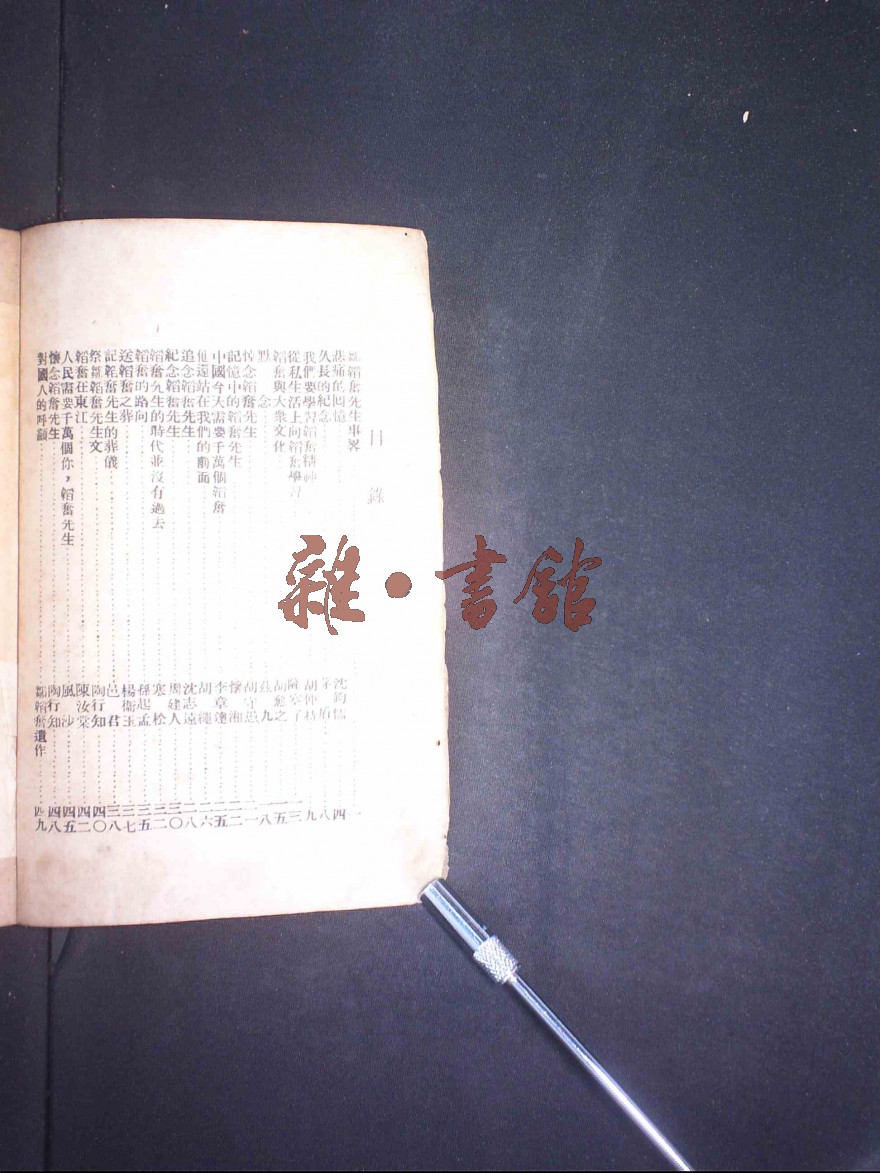 目錄
鄒韜奮先生事畧……一
悲痛的回憶……沈鈞儒……四
久長的紀念……茅盾……八
我們要學習韜奮精神……胡仲持……九
從私生活上向韜奮學習……一三
韜奮與大衆文化……胡愈之……一五
默念……茲九……一八
悼念韜奮先生……胡守愚……二一
記憶中的韜奮先生……懷湘……二二
中國今天需要千萬個韜奮……李章達……二五
他還站在我們的前面……胡繩……二六
追念韜奮先生……沈志遠……二八
紀念韜奮先生……周建人……三〇
韜奮先生的時代並沒有過去……寒松……三二
韜奮的路向……孫起孟……三五
送韜奮之葬……楊衞玉……三七
記韜奮先生的葬儀……邑君……三八
祭鄒韜奮先生文……陶行知……四〇
韜奮在東江……陳汝棠……四二
人民需要千萬個你，韜奮先生……風沙……四五
懷念韜奮先生……陶行知……四八
對國人的呼籲……鄒韜奮遺作……四九
雜·書館